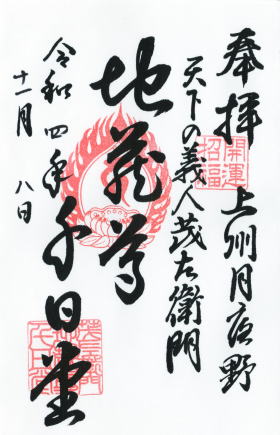 奉拝 上州月夜野
天下の義人茂左衛門
開運
招福
地蔵尊
千日堂
令和四年
十一月 八日